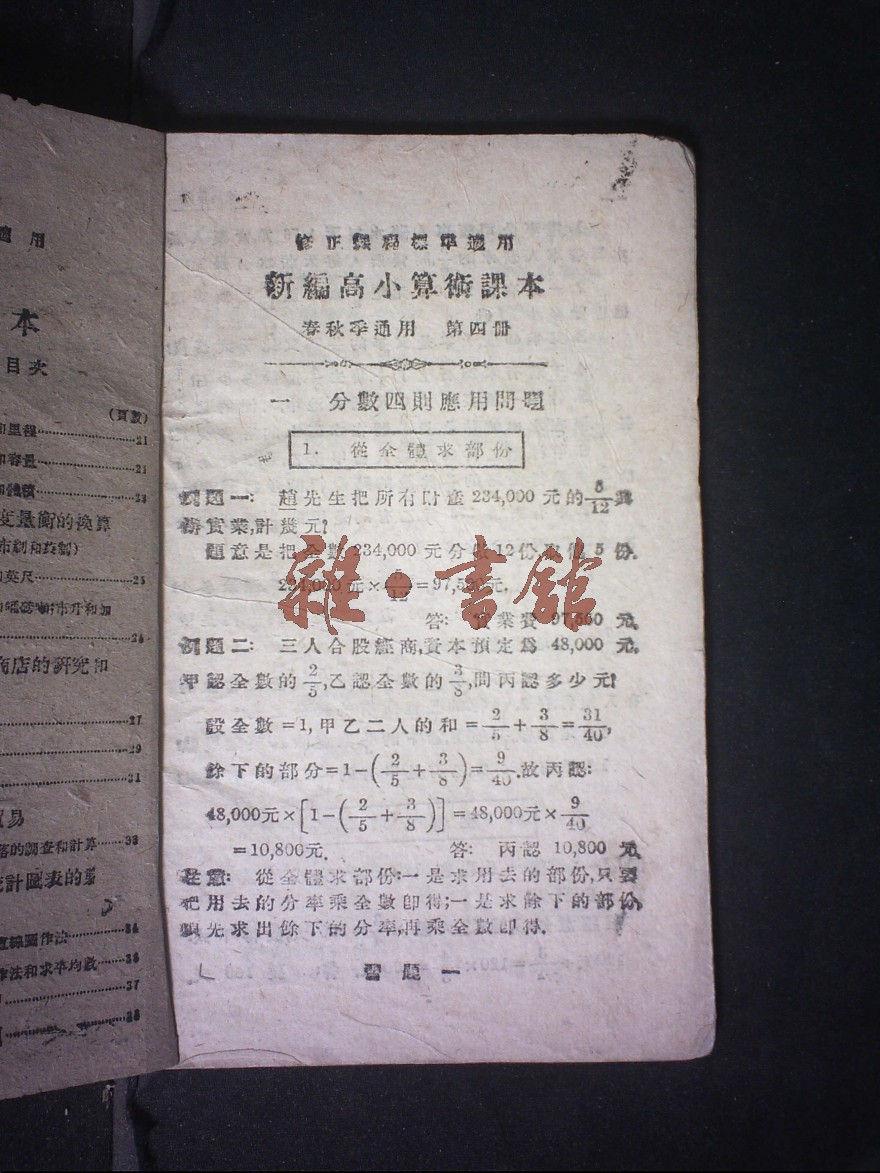 適用
本
目次
(頁數)
和里程……21
和容量……21
和體積……23
度量衡的換算
市制和英制)
和英尺……25
市升和加
……26
商店的研究和
……27
……29
……31
貿易
落的調查和計算……33
統計圖表的
直線圖作法……34
作法和求平均數……36
……37
……38
修正課程標準適用
新編高小算術課本
春秋季通用 第四冊
一 分數四則應用問題
1. 從全體求部份
例題一: 趙先生把所有財產 234,000 元的 5/12 興
辦實業,計幾元?
題意是把全數 234,000 元分做12份取他 5 份.
234,000 元 × 5/12 = 97,500元.
答: 實業費 97,500 元.
例題二: 三人合股經商,資本預定爲 48,000 元.
甲認全數的 2/5,乙認全數的 3/8,問丙認多少元?
設全數=1,甲乙二人的和= 2/5 + 3/8 = 31/40,
餘下的部分=1-(2/5 + 3/8)= 9/40.故丙認:
48,000元×[1-(2/5 + 3/8)]=48,000元× 9/40
=10,800元. 答: 丙認 10,800 元.
注意: 從全體求部份:一是求用去的部份,只要
把用去的分率乘全數即得;一是求餘下的部份,
須先求出餘下的分率,再乘全數即得.
習題一
雜·書館